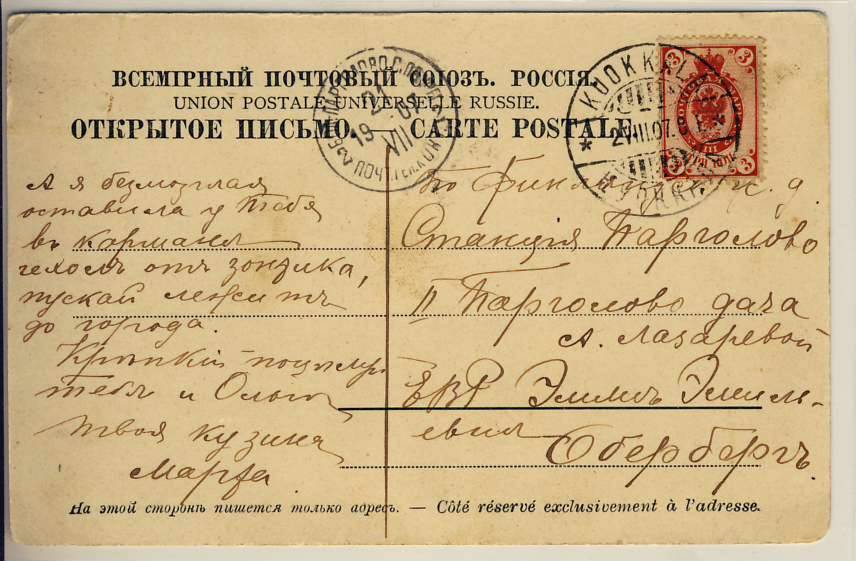 ВСЕМІРНЫЙ ПОЧТОВЫЙ СОЮЗЪ. РОССІЯ.
UNION POSTALE UNIVERSELLE RUSSIE.
ОТКРЫТОЕ ПИСЬМО. — CARTE POSTALE
KUOKKALA
2.VIII.07.
21
1907
VIII
3 3
3 3
А я безмозглая
оставила у Тебя
въ карманѣ
чехолъ отъ зонтика,
пускай лежитъ
до города.
Крѣпкій поцѣлуй
тебѣ и Ольгѣ,
твоя кузина
Марѳа.
По Финлянд. ж. д.
Станція Парголово
II Парголово дача
А. Лазаревой
ЕВР Эмилъ Эмиль-
евичъ
Обербергъ.
На этой сторонѣ пишется только адресъ. — Côté réservé exclusivement à l'adresse.